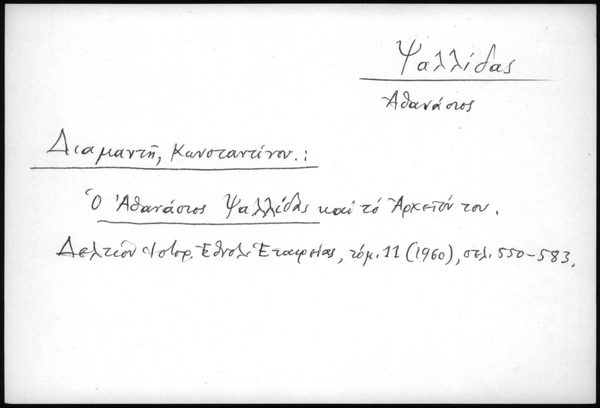 Ψαλλίδας
Ἀθανάσιος
Διαμαντῆ, Κωνσταντίνου.:
Ὁ Ἀθανάσιος Ψαλλίδας καί τό Ἀρχεῖόν του.
Δελτίον Ἱστορ. Ἐθνολ. Ἑταιρείας, τόμ. 11 (1960), σελ. 550-583.